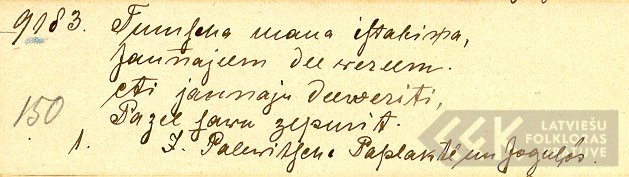 9183. Tumscha mana istabiņa,
Jaunajeem deewereem.
Ai jaunaju deewerīti,
Pazel sawu zepurit.
150
1. J. Palewitscha Paplakē un Jogulos.
LATVIEŠU
FOLKLORAS
KRĀTUVE